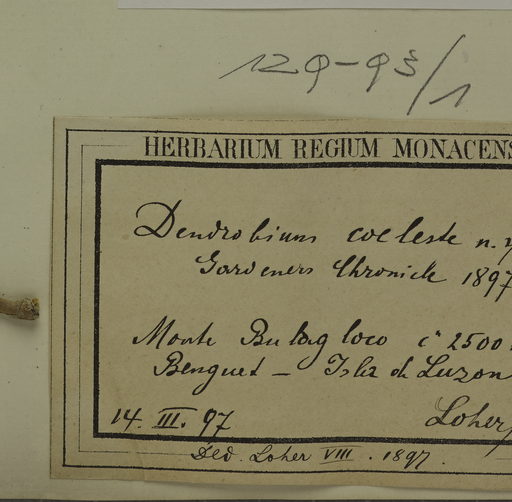 129-93/1
HERBARIUM REGIUM MONACENS
Dendrobium coeleste n.
Gardeners Chronicle 1897
Monte Bulog loco c^a 2500
Benguet — Isla de Luzon
14. III. 97 Loher
Ded. Loher VIII. 1897.